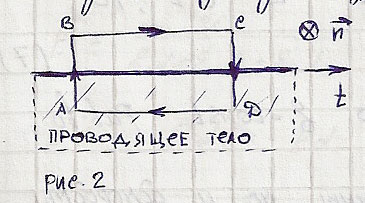 B C n
A D t
ПРОВОДЯЩЕЕ ТЕЛО
рис. 2